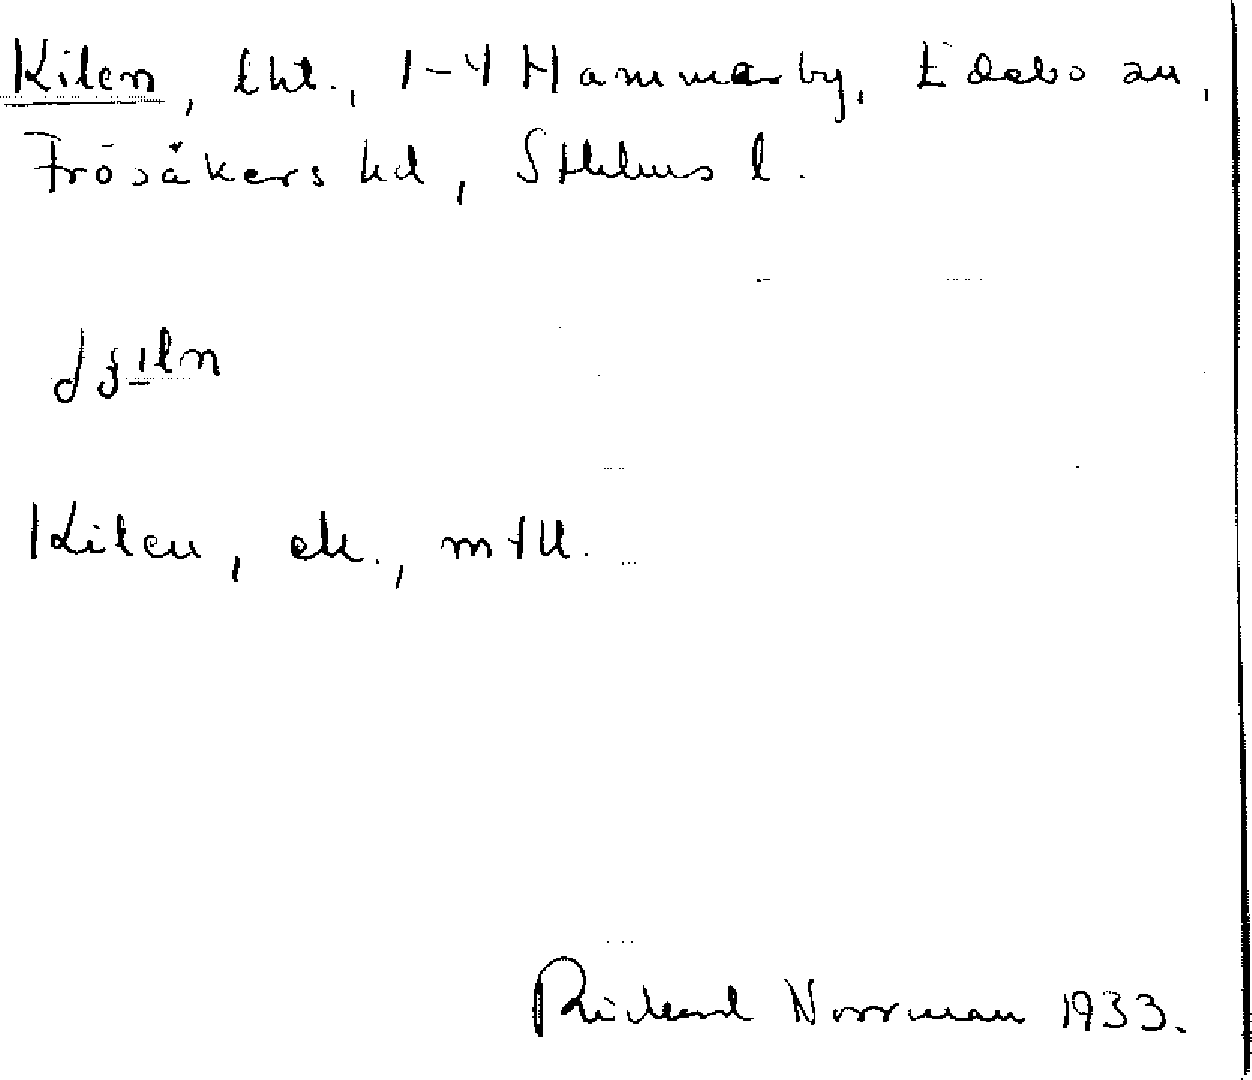 Kilen, lht., 1-4 Hammarby, Edebo sn,
Frösåkers hd, Sthlms l.
Kilen, ek., mtll.
Rickard Norrman 1933.